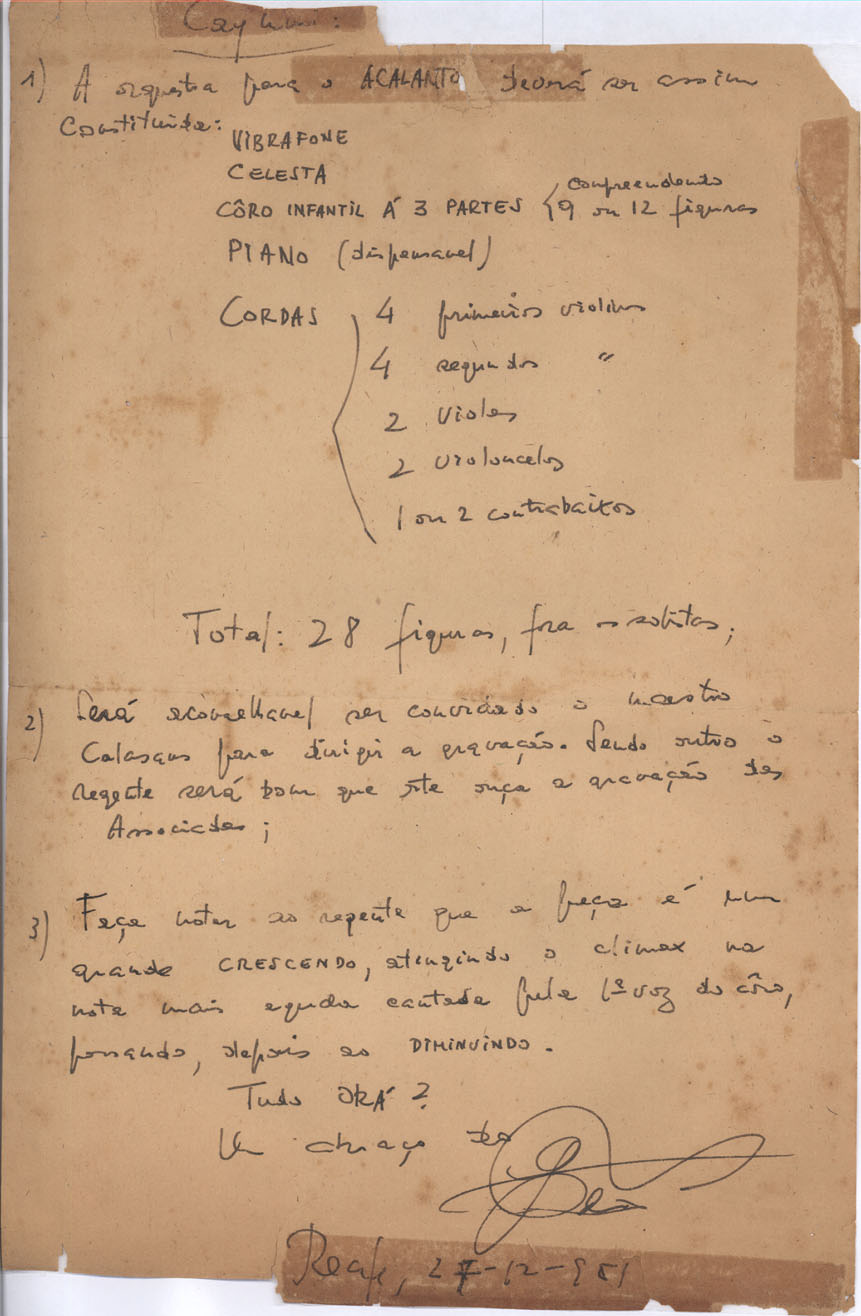 Caymmi:
1) A orquestra para o ACALANTO deverá ser assim
Constituida:
VIBRAFONE
CELESTA
CÔRO INFANTIL Á 3 PARTES { compreendendo
9 ou 12 figuras
PIANO (dispensavel)
CORDAS 4 primeiros violinos
4 segundos "
2 violas
2 violoncelos
1 ou 2 contrabaixos
Total: 28 figuras, fora os solistas;
2) Será aconselhavel ser convidado o maestro
Calasans para dirigir a gravação. Sendo outro o
regente será bom que êste ouça a gravação das
Associadas;
3) Faça notar ao regente que a peça é um
grande CRESCENDO, atingindo o climax na
nota mais aguda cantada pela 1ª voz do côro,
passando, depois ao DIMINUINDO.
Tudo OKÁ?
Um abraço do
Recife, 27-12-951